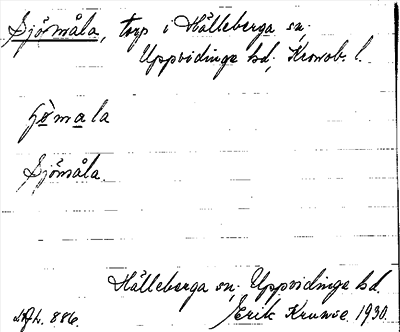 Sjömåla, torp i Hälleberga sn,
Uppvidinge hd, Kronob. l.
Sjömåla.
Hälleberga sn, Uppvidinge hd.
Erik 1930.
886.